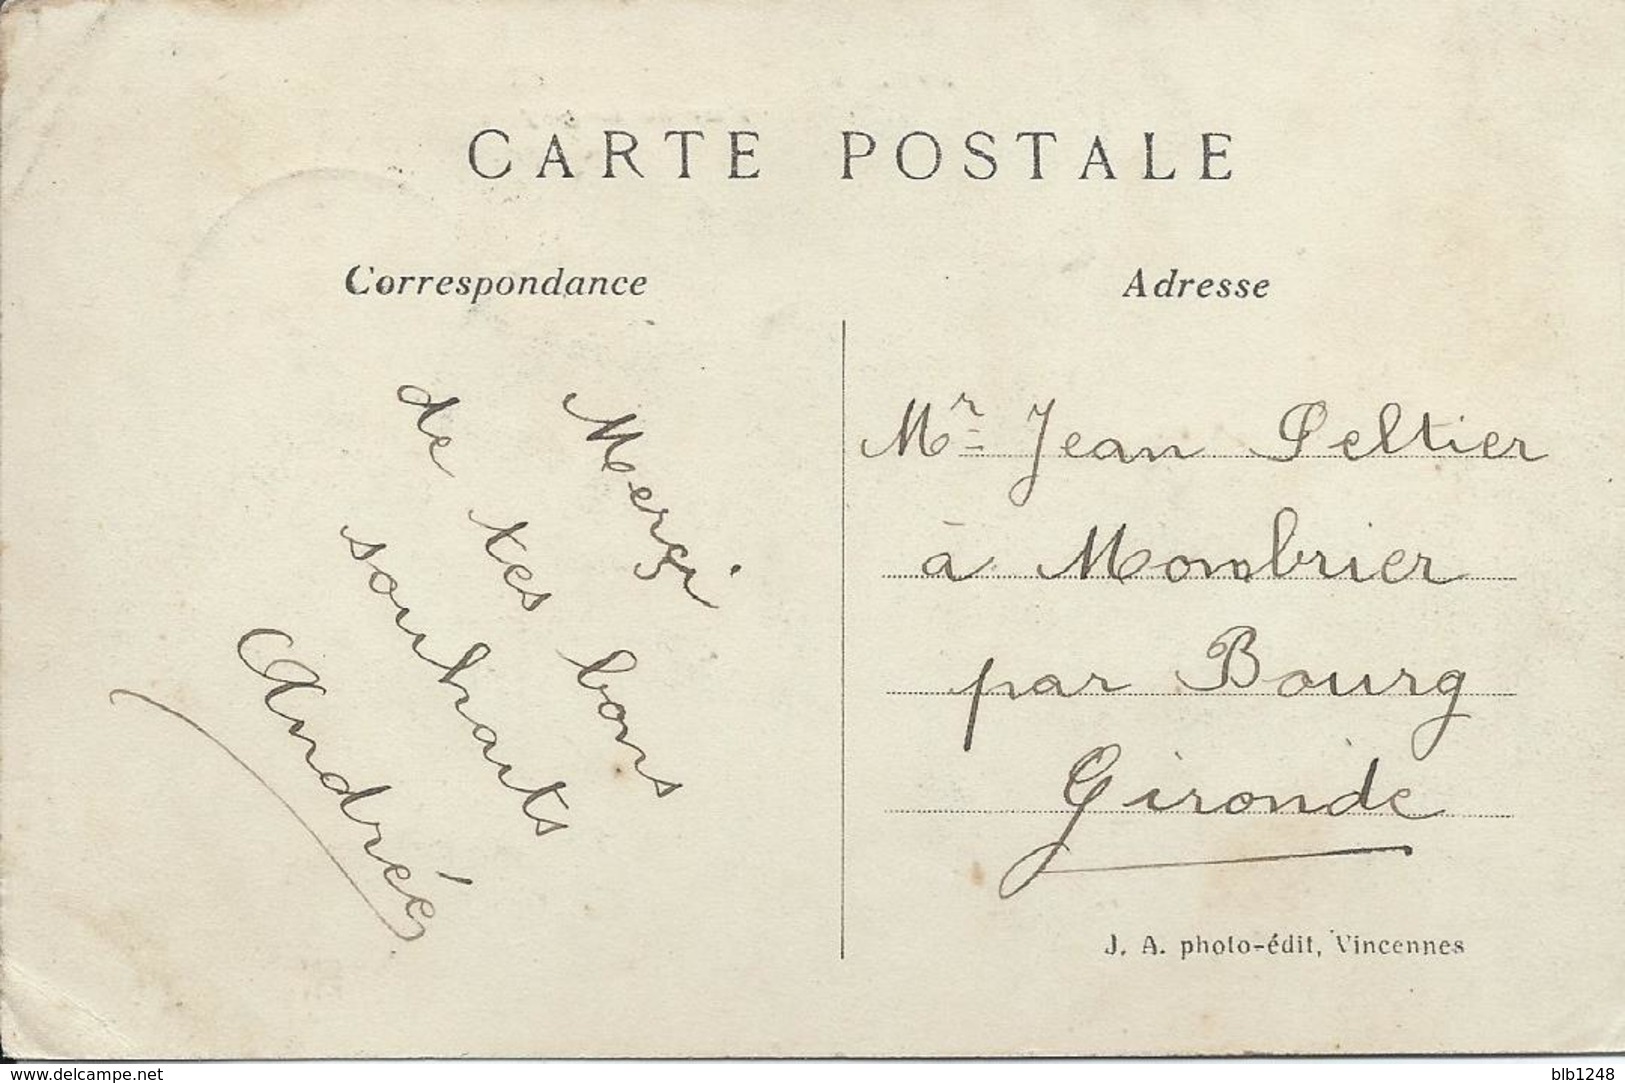 CARTE POSTALE
Correspondance
Merci
de tes bons
souhaits
Andrée
Adresse
Mr Jean Peltier
à Mombrier
par Bourg
Gironde
J. A. photo-édit, Vincennes
www.delcampe.net
blb1248